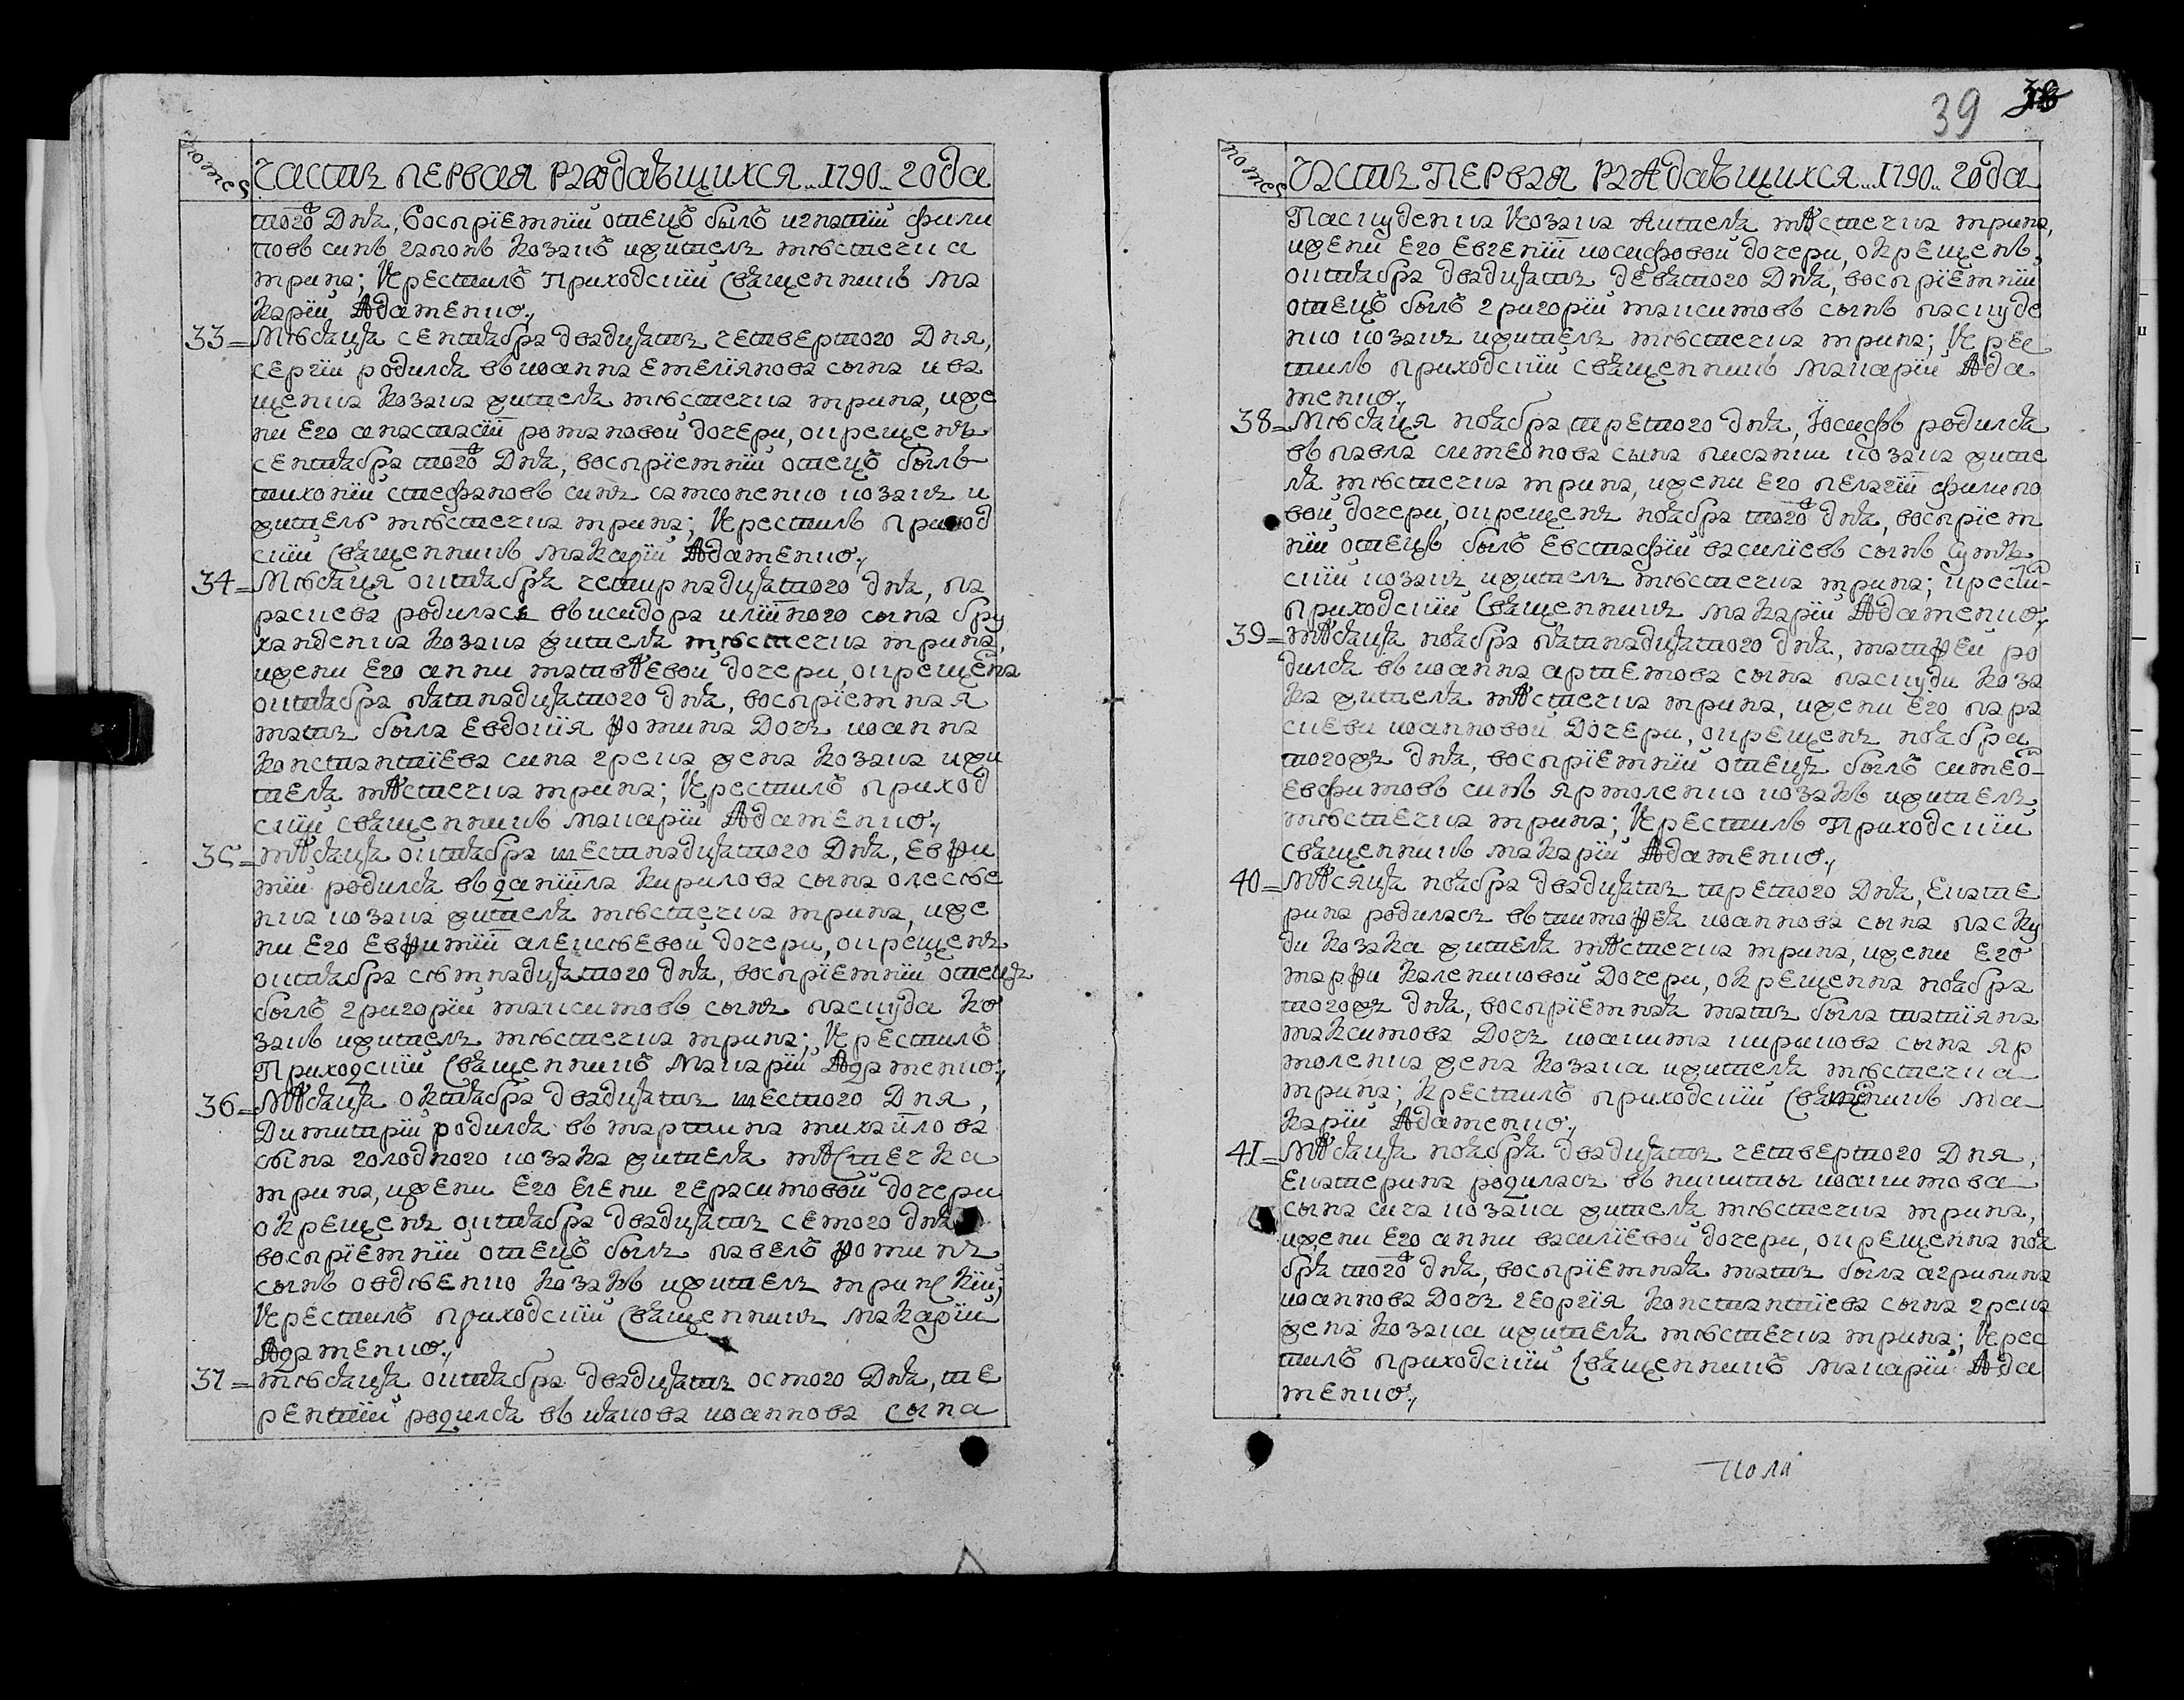 номеръ
Часть первая раждавщихся .. 1790 .. года
тогоѫ дня, восприемній отецъ былъ игнатій фили
повъ синъ гапонъ козакъ ижитель мѣстечка
мрина; крестилъ приходскій священникъ ма
карій Адаменко.,
33= Мѣсяца сентября двадцять четвертого дня,
сергій родился въ иоанна емеліянова сына ива
щенка козака жителя мѣстечка мрина, иже
ни его анастасіи романовой дочери, окрещенъ
сентября тогоѫ дня, восприемній отецъ былъ
тихоній стефановъ синъ самсоненко козакъ и
житель мѣстечка мрина; крестилъ приход
скій священникъ макарій Адаменко.,
34= Мѣсяця октября четирнадцятого дня, па
расцева родилась въ исидора иліиного сына бру
ханденка козака жителя мѣстечка мрина,
ижени его анни матвѣевой дочери, окрещена
октября пятнадцятого дня, восприемная
мать была евдокія фомина дочь иоанна
константиева сина грека жена козака ижи
теля мѣстечка мрина; крестилъ приход
скій священникъ макарій Адаменко.,
35= мѣсяця октября шестнадцятого дня, евфи
мій родился въ даніила кирилова сына олесѣе
нка козака жителя мѣстечка мрина, иже
ни его евфиміи алексѣевой дочери, окрещенъ
октября сѣмнадцятого дня, восприемній отецъ
былъ григорій максимовъ сынъ паскуда ко
закъ ижитель мѣстечка мрина; крестилъ
приходскій священникъ макарій Адаменко.,
36= мѣсяця октября двадцять шестого дня,
димитрій родился въ мартина михайлова
сына голодного козака жителя мѣстечка
мрина, ижени его елени герасимовой дочери
окрещенъ октября двадцять семого дня
восприемній отецъ былъ павелъ фоминъ
сынъ овдѣенко козакъ ижитель мринскій;
крестилъ приходскій священникъ макарій
Адаменко.,
37= мѣсяця октября двадцять осмого дня, те
рентій родился въ якова иоаннова сына
39 38
номеръ
Часть первая раждавщихся ... 1790 .. года
паскуденка козака жителя мѣстечка мрина,
ижени его евгеніи иосифовой дочери, окрещенъ,
октября двадцять девятого дня, восприемній
отецъ былъ григорій максимовъ сынъ паскуде
нко козакъ ижитель мѣстечка мрина; крес
тилъ приходскій священникъ макарій Ада
менко.,
38= Мѣсяця ноября третого дня, иосифъ родился
въ павла симеонова сына писанки козака жите
ля мѣстечка мрина, ижени его пелагіи филипо
вой дочери, окрещенъ ноября тогоѫ дня, восприем
ній отецъ былъ евстафій василіевъ сынъ сумя
скій козакъ ижитель мѣстечка мрина; крести-
приходскій священникъ макарій Адаменко.,
39= мѣсяця ноября пятнадцятого дня, матфей ро
дился въ иоанна артемова сына паскуди коза
ка жителя мѣстечка мрина, ижени его пара
скеви иоанновой дочери, окрещенъ ноября
тогожъ дня, восприемній отецъ былъ симео-
евфимовъ синъ ярмоленко козакъ ижитель
мѣстечка мрина; крестилъ приходскій
священникъ макарій Адаменко.,
40= мѣсяця ноября двадцять третого дня, екате
рина родилась въ тимофея иоаннова сына паску
ди козака жителя мѣстечка мрина, ижени его
марфи калениковой дочери, окрещенна ноября
тогожъ дня, восприемная мать была татіяна
максимова дочь иоакима кирикова сына яр
моленка жена козака ижителя мѣстечка
мрина; крестилъ приходскій священникъ ма
карій Адаменко.,
41= мѣсяця ноября двадцять четвертого дня,
екатерина родилась въ никити иоакимова
сына сича козака жителя мѣстечка мрина,
ижени его анни василіевой дочери, окрещенна ноя
бря тогоѫ дня, восприемная мать была агрипина
иоаннова дочь георгія константиева сына грека
жена козака ижителя мѣстечка мрина; крес
тилъ приходскій священникъ макарій Ада
менко.,